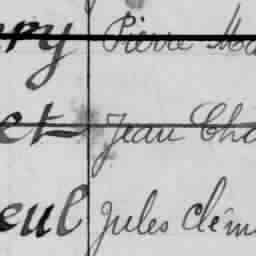 ry Pierre Ma
et Jean Cha
eul Jules Clém